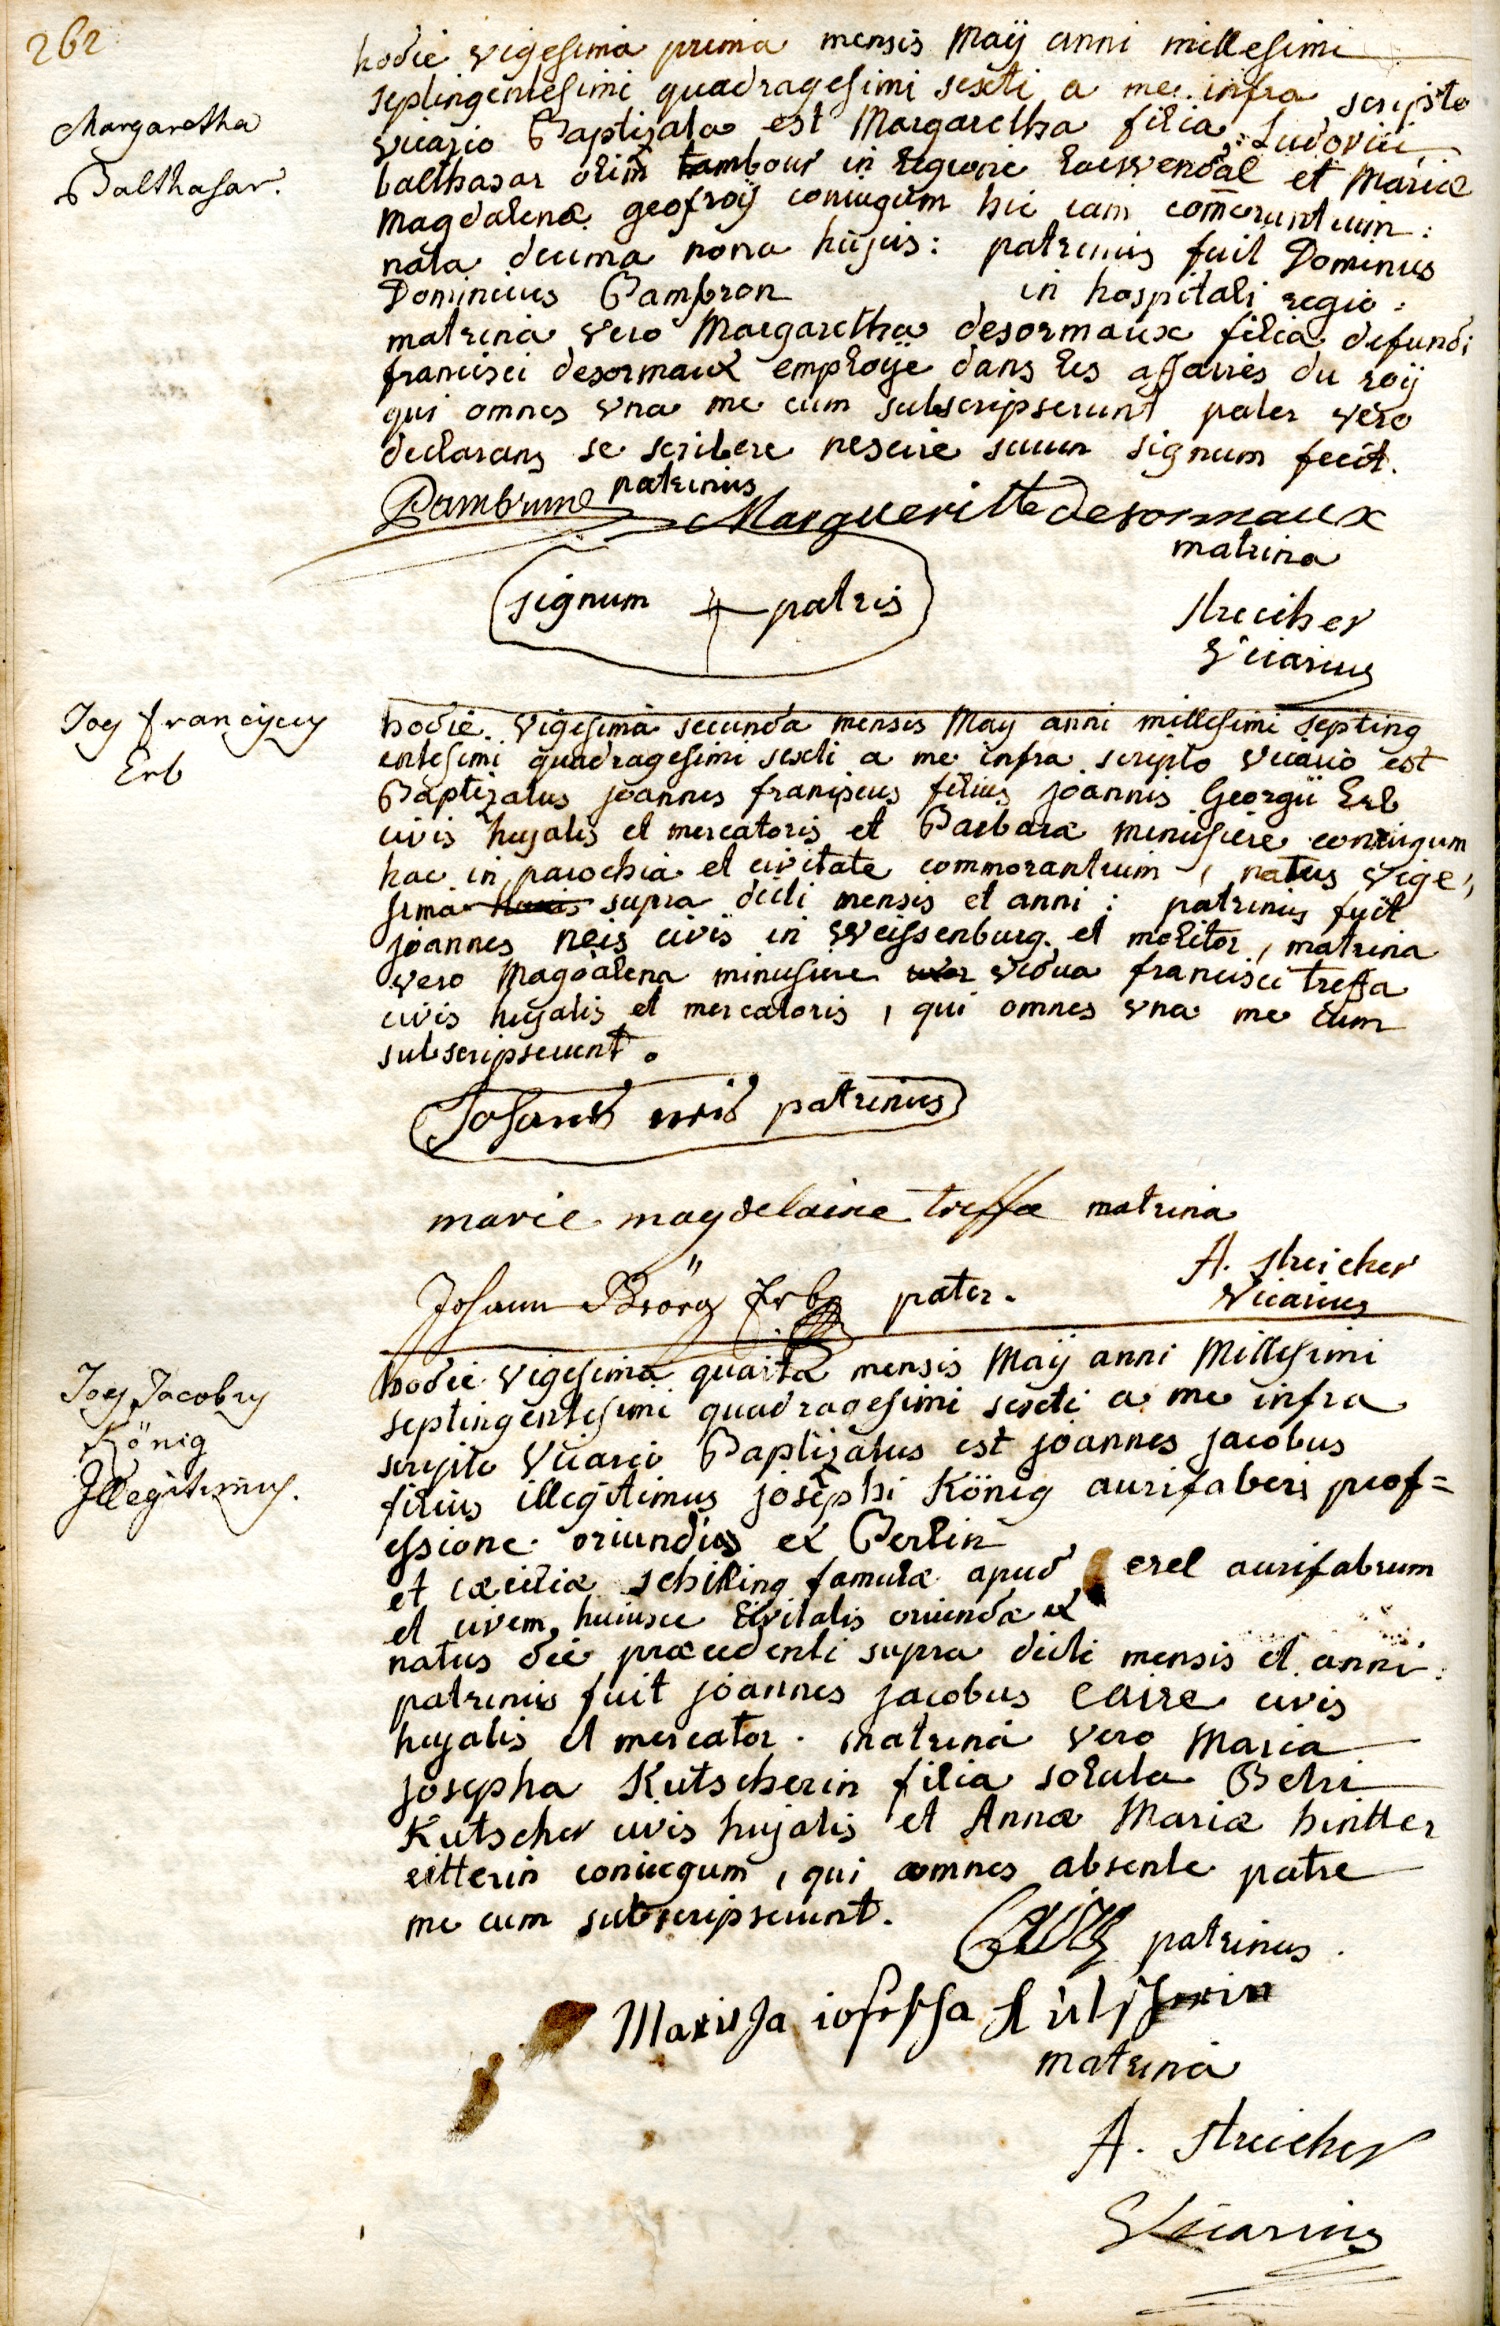 262
Margaretha
Balthasar.
hodie vigesima prima mensis Maÿ anni millesimi
septingentesimi quadragesimi sexti a me infra scripto
vicario Baptizata est Margaretha filia Ludovici
balthasar olim tambour in regione Lowendal et Mariæ
Magdalenæ geofroÿ coniugum hic iam com̄orantium:
nata decima nona hujus: patrinus fuit Dominus
Dominicus Pambron in hospitali regio:
matrina vero Margaretha desormaux filia defuncti
francisci desormaux employé dans les affaires du roÿ
qui omnes vna me cum subscripserunt pater vero
declarans se scribere nescire suum signum fecit.
Pambrun patrinus
Margueritte desormaux
matrina
signum patris
streicher
Vicarius
Joes franciscus
Erb
hodie vigesima secunda mensis Maÿ anni millesimi septing
entesimi quadragesimi sexti a me infra scripto vicario est
Baptizatus joannes franciscus filius joannis Georgii Erb
civis hujatis et mercatoris et Barbaræ minusiere coniugum
hac in parochia et civitate commorantium, natus vige,
sima huius supra dicti mensis et anni: patrinus fuit
joannes neis civis in Weissenburg et molitor, matrina
vero Magdalena minusiere uxor vidua francisci treffa
civis hujatis et mercatoris, qui omnes vna me cum
subscripserunt.
Johannes neis patrinus
marie magdelaine treffa matrina
A. streicher
Vicarius
Johann Görg Erb pater.
Joes Jacobus
König
Illegitimus.
hodie vigesima quarta mensis Maÿ anni Millesimi
septingentesimi quadragesimi sexti a me infra
scripto Vicario Baptizatus est joannes jacobus
filius illegitimus josephi König aurifabers prof=
essione oriundus ex Berlin
et cæciliæ schilling famulæ apud erel aurifabrum
et civem huiusce civitatis oriunda ex
natus die præcedenti supra dicti mensis et anni:
patrinus fuit joannes jacobus Caire civis
hujatis et mercator. matrina vero Maria
josepha Kutscherin filia soluta Petri
Kutscher civis hujatis et Annæ Mariæ hintter
eitterin coniugum, qui omnes absente patre
me cum subscripserunt.
Caire patrinus.
Mariia iosepha Kutscherin
matrina
A. streicher
Vicarius